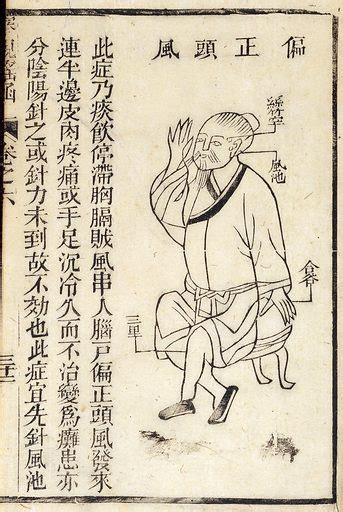 偏正頭風
絲竹空
風池
合谷
三里
此症乃痰飲停滯胸膈賊風串人腦戶偏正頭風發來
連半邊皮肉疼痛或手足沉冷久而不治變為癱患亦
分陰陽針之或針力未到故不効也此症宜先針風池
卷之六
三十二